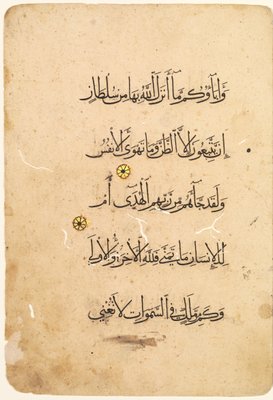 وَءَابَآؤُكُم مَّآ أَنزَلَ ٱللَّهُ بِهَا مِن سُلْطَانٍ
إِن يَتَّبِعُونَ إِلَّا ٱلظَّنَّ وَمَا تَهْوَى ٱلْأَنفُسُ
وَلَقَدْ جَآءَهُم مِّن رَّبِّهِمُ ٱلْهُدَىٰٓ أَمْ
لِلْإِنسَانِ مَا تَمَنَّىٰ فَلِلَّهِ ٱلْآخِرَةُ وَٱلْأُولَىٰ
وَكَم مِّن مَّلَكٍ فِى ٱلسَّمَوَاتِ لَا تُغْنِى